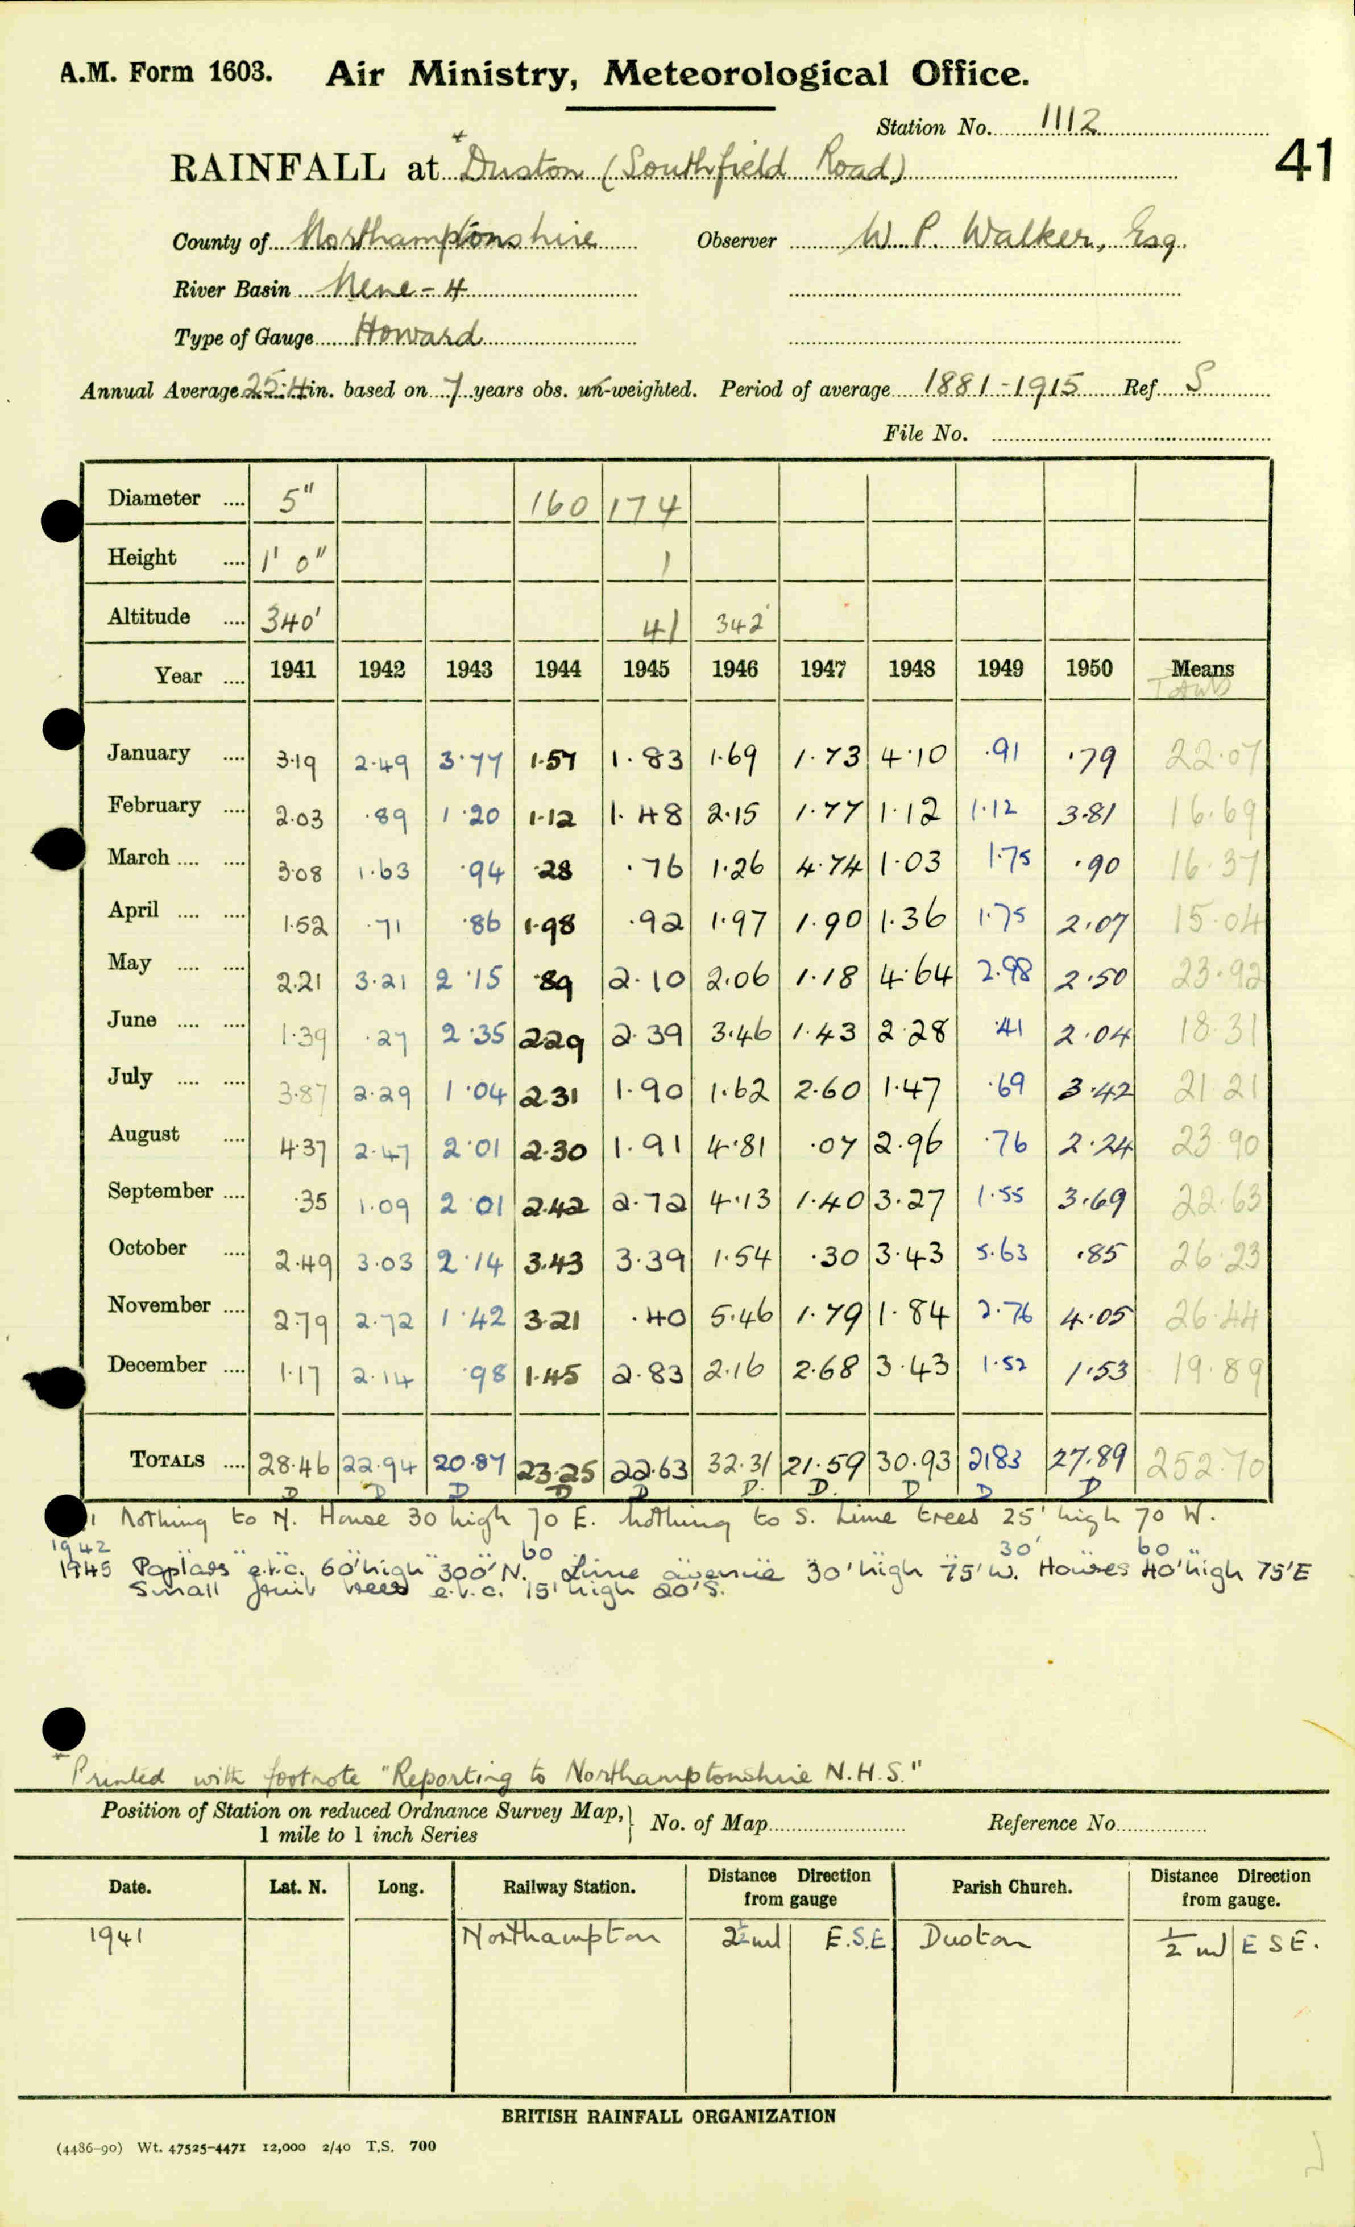 A.M. Form 1603. Air Ministry, Meteorological Office.
Station No. 1112
41
RAINFALL at *Duston (Southfield Road)
County of Northamptonshire Observer W. P. Walker, Esq.
River Basin Nene - 4
Type of Gauge Howard
Annual Average 25.4 in. based on 7 years obs. un-weighted. Period of average 1881-1915 Ref. S
File No.
Diameter .... 5" 160 174
Height .... 1' 0" 1
Altitude .... 340' 41 342'
Year .... 1941 1942 1943 1944 1945 1946 1947 1948 1949 1950 Means
Totals
January .... 3.19 2.49 3.77 1.57 1.83 1.69 1.73 4.10 .91 .79 22.07
February .... 2.03 .89 1.20 1.12 1.48 2.15 1.77 1.12 1.12 3.81 16.69
March .... .... 3.08 1.63 .94 .28 .76 1.26 4.74 1.03 1.75 .90 16.37
April .... .... 1.52 .71 .86 1.98 .92 1.97 1.90 1.36 1.75 2.07 15.04
May .... .... 2.21 3.21 2.15 .89 2.10 2.06 1.18 4.64 2.98 2.50 23.92
June .... .... 1.39 .27 2.35 2.29 2.39 3.46 1.43 2.28 .41 2.04 18.31
July .... .... 3.87 2.29 1.04 2.31 1.90 1.62 2.60 1.47 .69 3.42 21.21
August .... 4.37 2.47 2.01 2.30 1.91 4.81 .07 2.96 .76 2.24 23.90
September .... .35 1.09 2.01 2.42 2.72 4.13 1.40 3.27 1.55 3.69 22.63
October .... 2.49 3.03 2.14 3.43 3.39 1.54 .30 3.43 5.63 .85 26.23
November .... 2.79 2.72 1.42 3.21 .40 5.46 1.79 1.84 2.76 4.05 26.44
December .... 1.17 2.14 .98 1.45 2.83 2.16 2.68 3.43 1.52 1.53 19.89
TOTALS .... 28.46 22.94 20.87 23.25 22.63 32.31 21.59 30.93 21.83 27.89 252.70
D D D D D D. D. D D D
Nothing to N. House 30 high 70 E. Nothing to S. Lime trees 25' high 70 W.
1942 " " " 60 30' " 60 "
1945 Poplars e.t.c. 60' high 300' N. Lime avenue 30' high 75' W. Houses 40' high 75' E
Small fruit trees e.t.c. 15' high 20' S.
*Printed with footnote "Reporting to Northamptonshire N.H.S."
Position of Station on reduced Ordnance Survey Map,
1 mile to 1 inch Series
No. of Map Reference No.
Date. Lat. N. Long. Railway Station. Distance Direction from gauge Parish Church. Distance Direction from gauge.
1941 Northampton 2½ ml E.S.E. Duston ½ ml E S E.
BRITISH RAINFALL ORGANIZATION
(4486-90) Wt. 47525-4471 12,000 2/40 T.S. 700